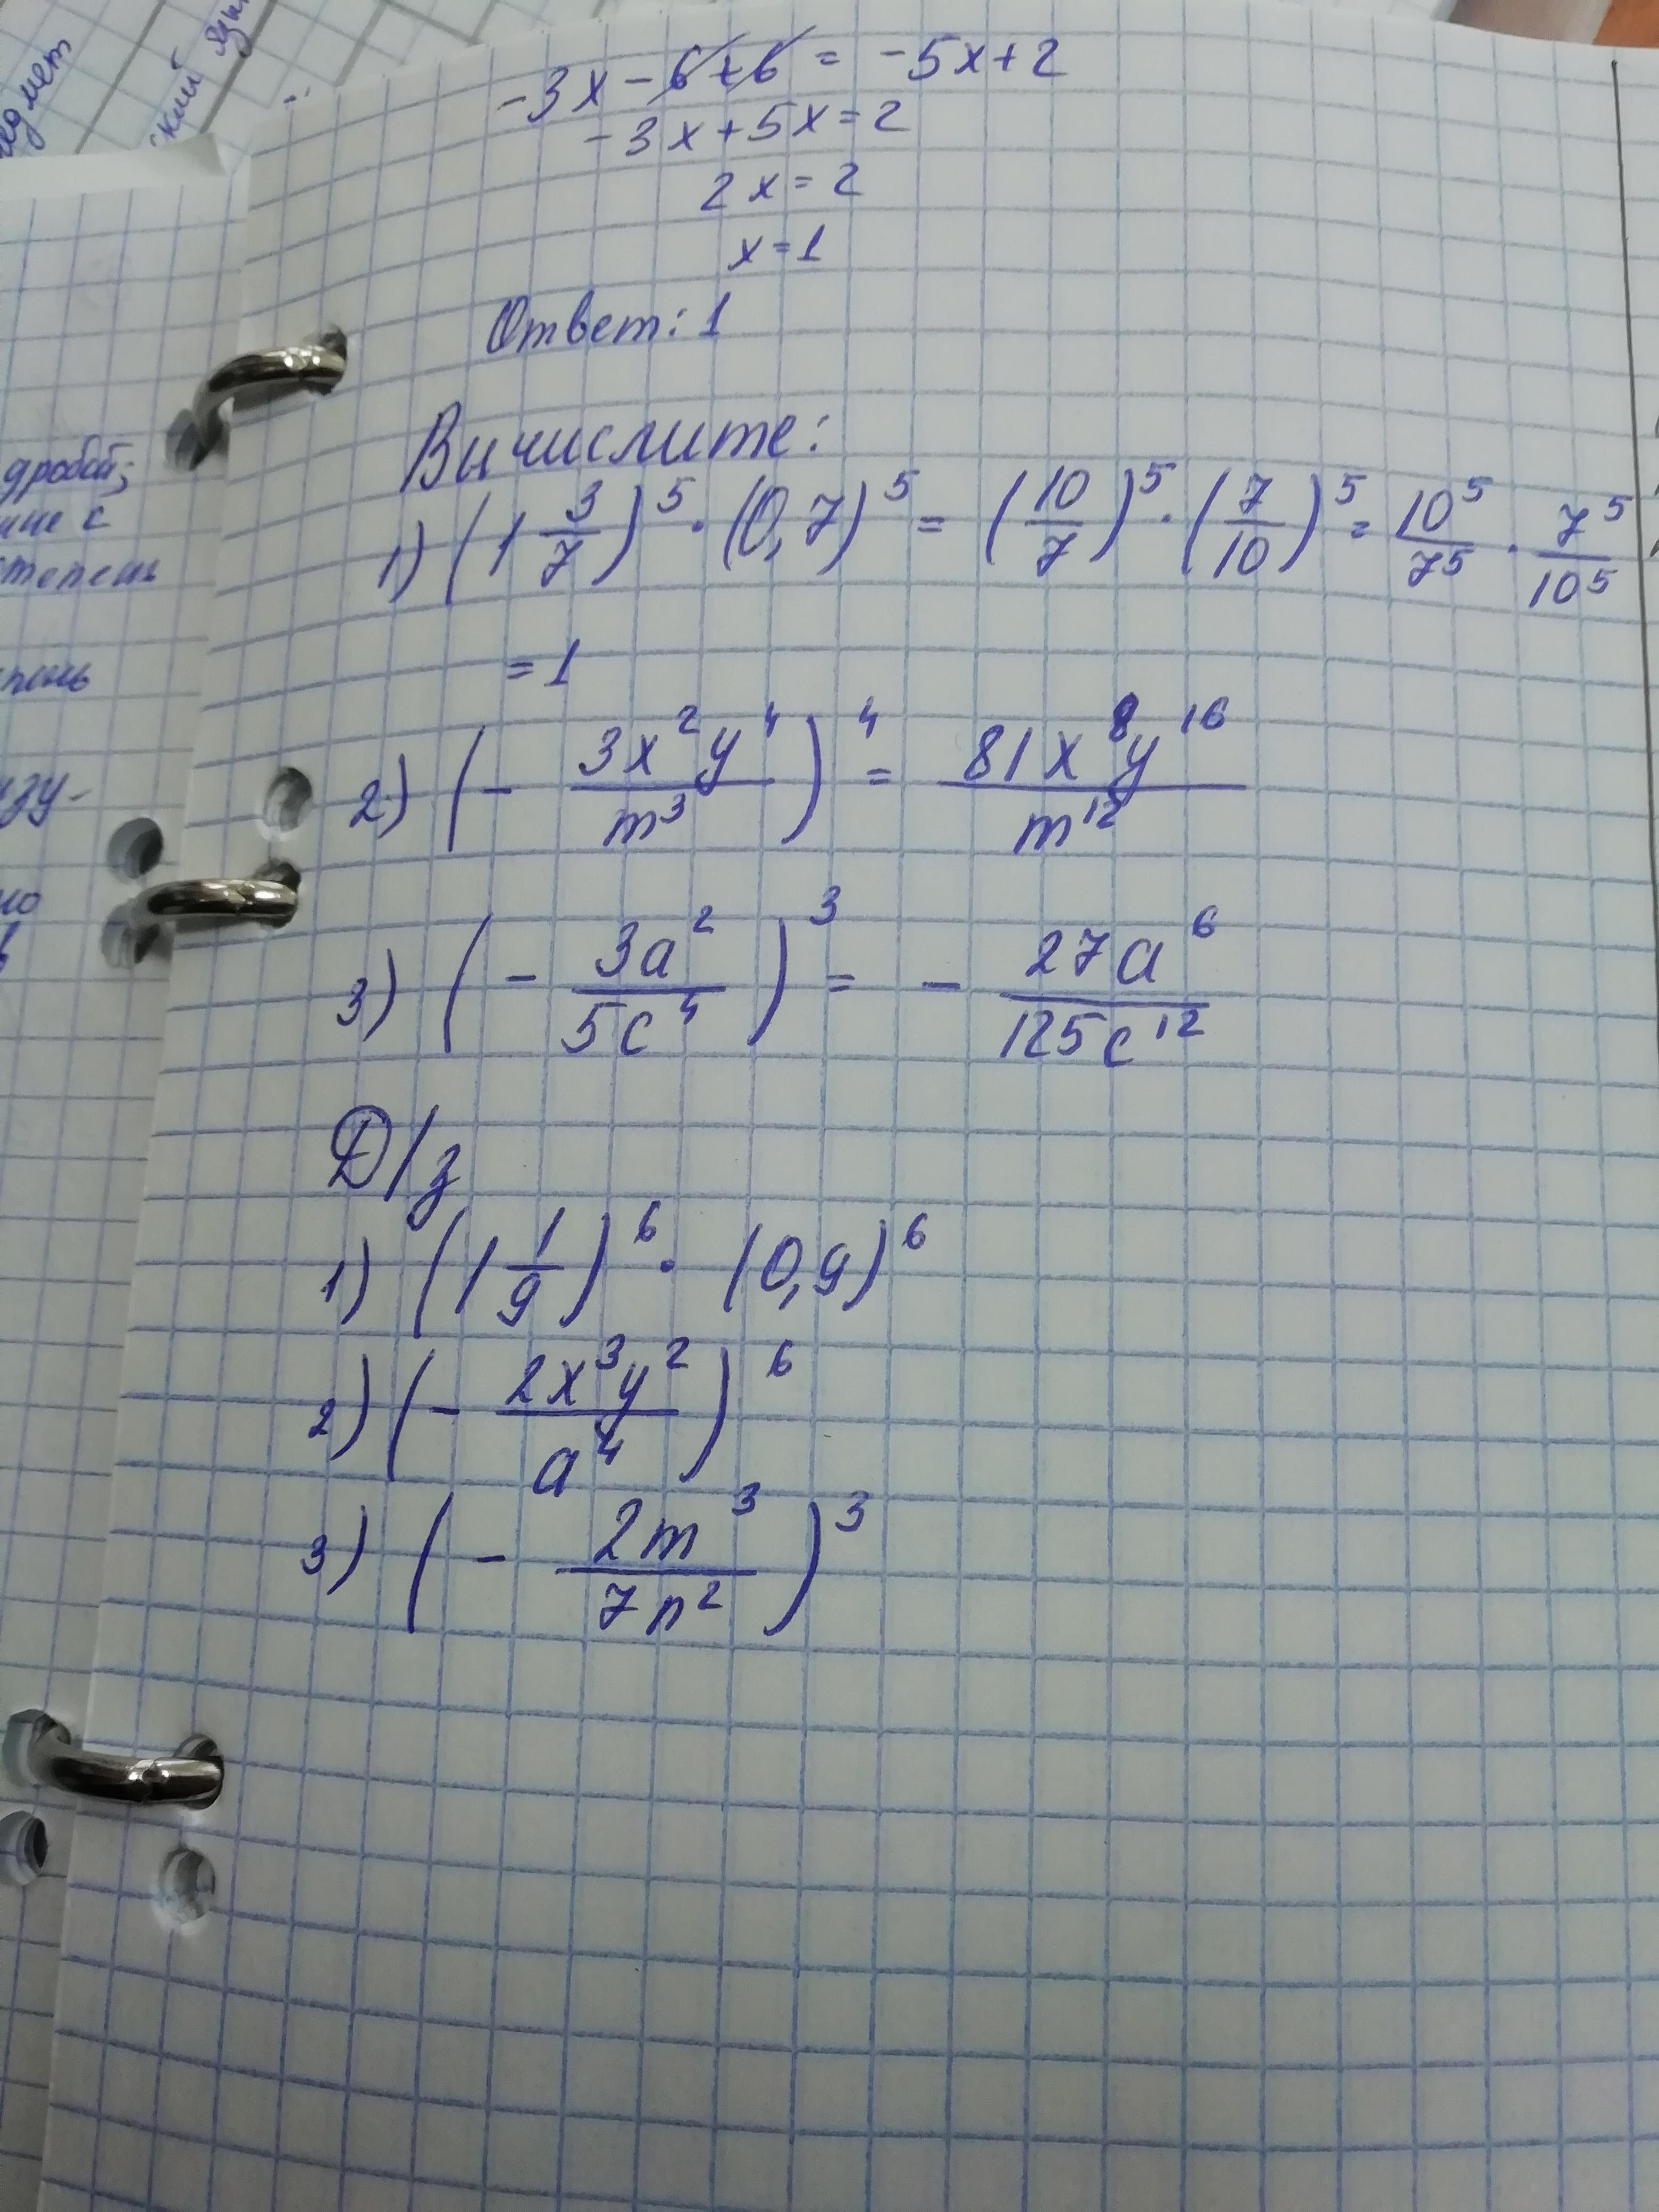 -3x - 6 + 6 = -5x + 2
-3x + 5x = 2
2x = 2
x = 1
Ответ: 1
Вычислите:
1) (1 3/7)^5 · (0,7)^5 = (10/7)^5 · (7/10)^5 = 10^5/7^5 · 7^5/10^5
= 1
2) (- 3x^2y^4/m^3)^4 = 81x^8y^16/m^12
3) (- 3a^2/5c^4)^3 = - 27a^6/125c^12
Д/з
1) (1 1/9)^6 · (0,9)^6
2) (- 2x^3y^2/a^4)^6
3) (- 2m^3/7n^2)^3
дробей;
с